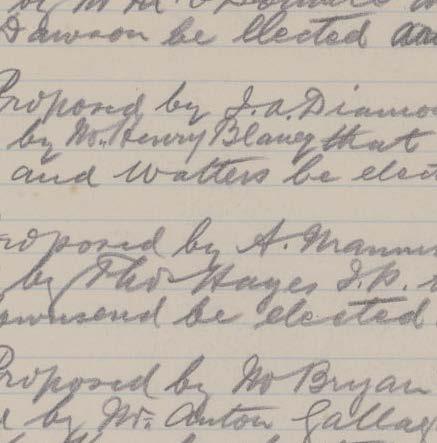 by
Dawson be Elected
Proposed by J. A. Diamo
by Mr. Henry Blaney that
and Watters be elect
roposed by A. Mannin
by Thos Hayes J.P.
ownsend be elected
Proposed by Mr Bryan
d by Mr. Anton Gallag